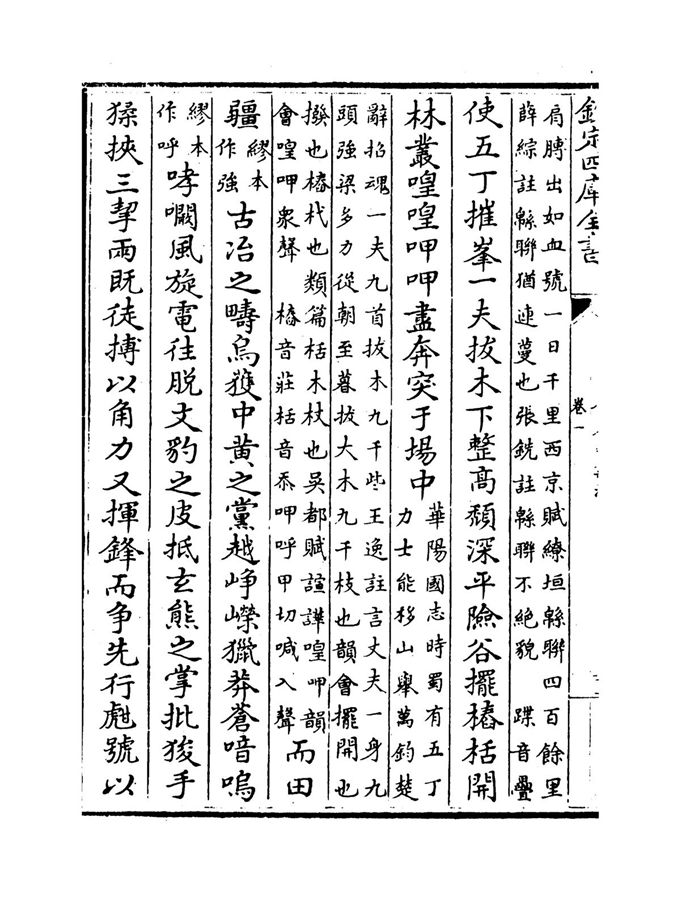 欽定四庫全書
卷一
肩膊出如血號一日千里西京賦繚垣緜聯四百餘里
薛綜註緜聯猶連蔓也張銑註緜聯不絶貌　蹀音疊
使五丁摧峯一夫拔木下整高頽深平險谷擺樁栝開
林叢喤喤呷呷盡奔突于塲中
華陽國志時蜀有五丁
力士能移山舉萬鈞楚
辭招魂一夫九首拔木九千些王逸註言丈夫一身九
頭強梁多力從朝至暮拔大木九千枝也韻會擺開也
撥也樁杙也類篇栝木杖也吳都賦諠譁喤呷韻
會喤呷衆聲　樁音莊栝音忝呷呼甲切喊入聲
而田
疆
繆本
作強
古冶之疇烏獲中黄之黨越崢嶸獵莽蒼喑嗚
繆本
作呼
哮闞風旋電往脱文豹之皮抵玄熊之掌批狻手
猱挾三挈兩既徒搏以角力又揮鋒而争先行號以